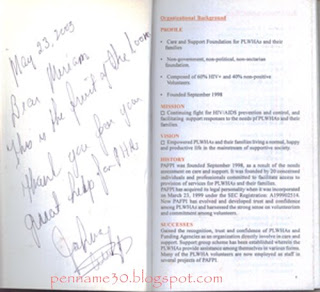 May 23, 2003
Dear Miriam
This is the fruit of the book
Thank you for your
great help for PLHA
Organizational Background
PROFILE
• Care and Support Foundation for PLWHAs and their
families.
• Non-government, non-political, non-sectarian
foundation.
• Composed of 60% HIV+ and 40% non-positive
Volunteers
• Founded September 1998
MISSION
Continuing fight for HIV/AIDS prevention and control, and
facilitating support responses to the needs of PLWHAs and their
families.
VISION
Empowered PLWHAs and their families living a normal, happy
and productive life in the mainstream of supportive society.
HISTORY
PAFPI was founded September 1998, as a result of the needs
assessment on care and support. It was founded by 20 concerned
individuals and professionals committed to facilitate access to
provision of services for PLWHAs and their families.
PAFPI has acquired its legal personality when it was incorporated
on March 23, 1999 under the SEC Registration
Now PAFPI has evolved and developed trust and confidence
among PLWHAs and harnessed the strong sense on volunteerism
and commitment among volunteers.
SUCCESSES
Gained the recognition, trust and confidence of PLWHAs and
Funding Agencies as an organization directly involve in care and
support. Support group scheme has been established wherein the
PLWHAs provide assistance among themselves in various forms.
Many of the PLWHA volunteers are now employed as staff in
several projects of PAFPI.
penname30.blogspot.com